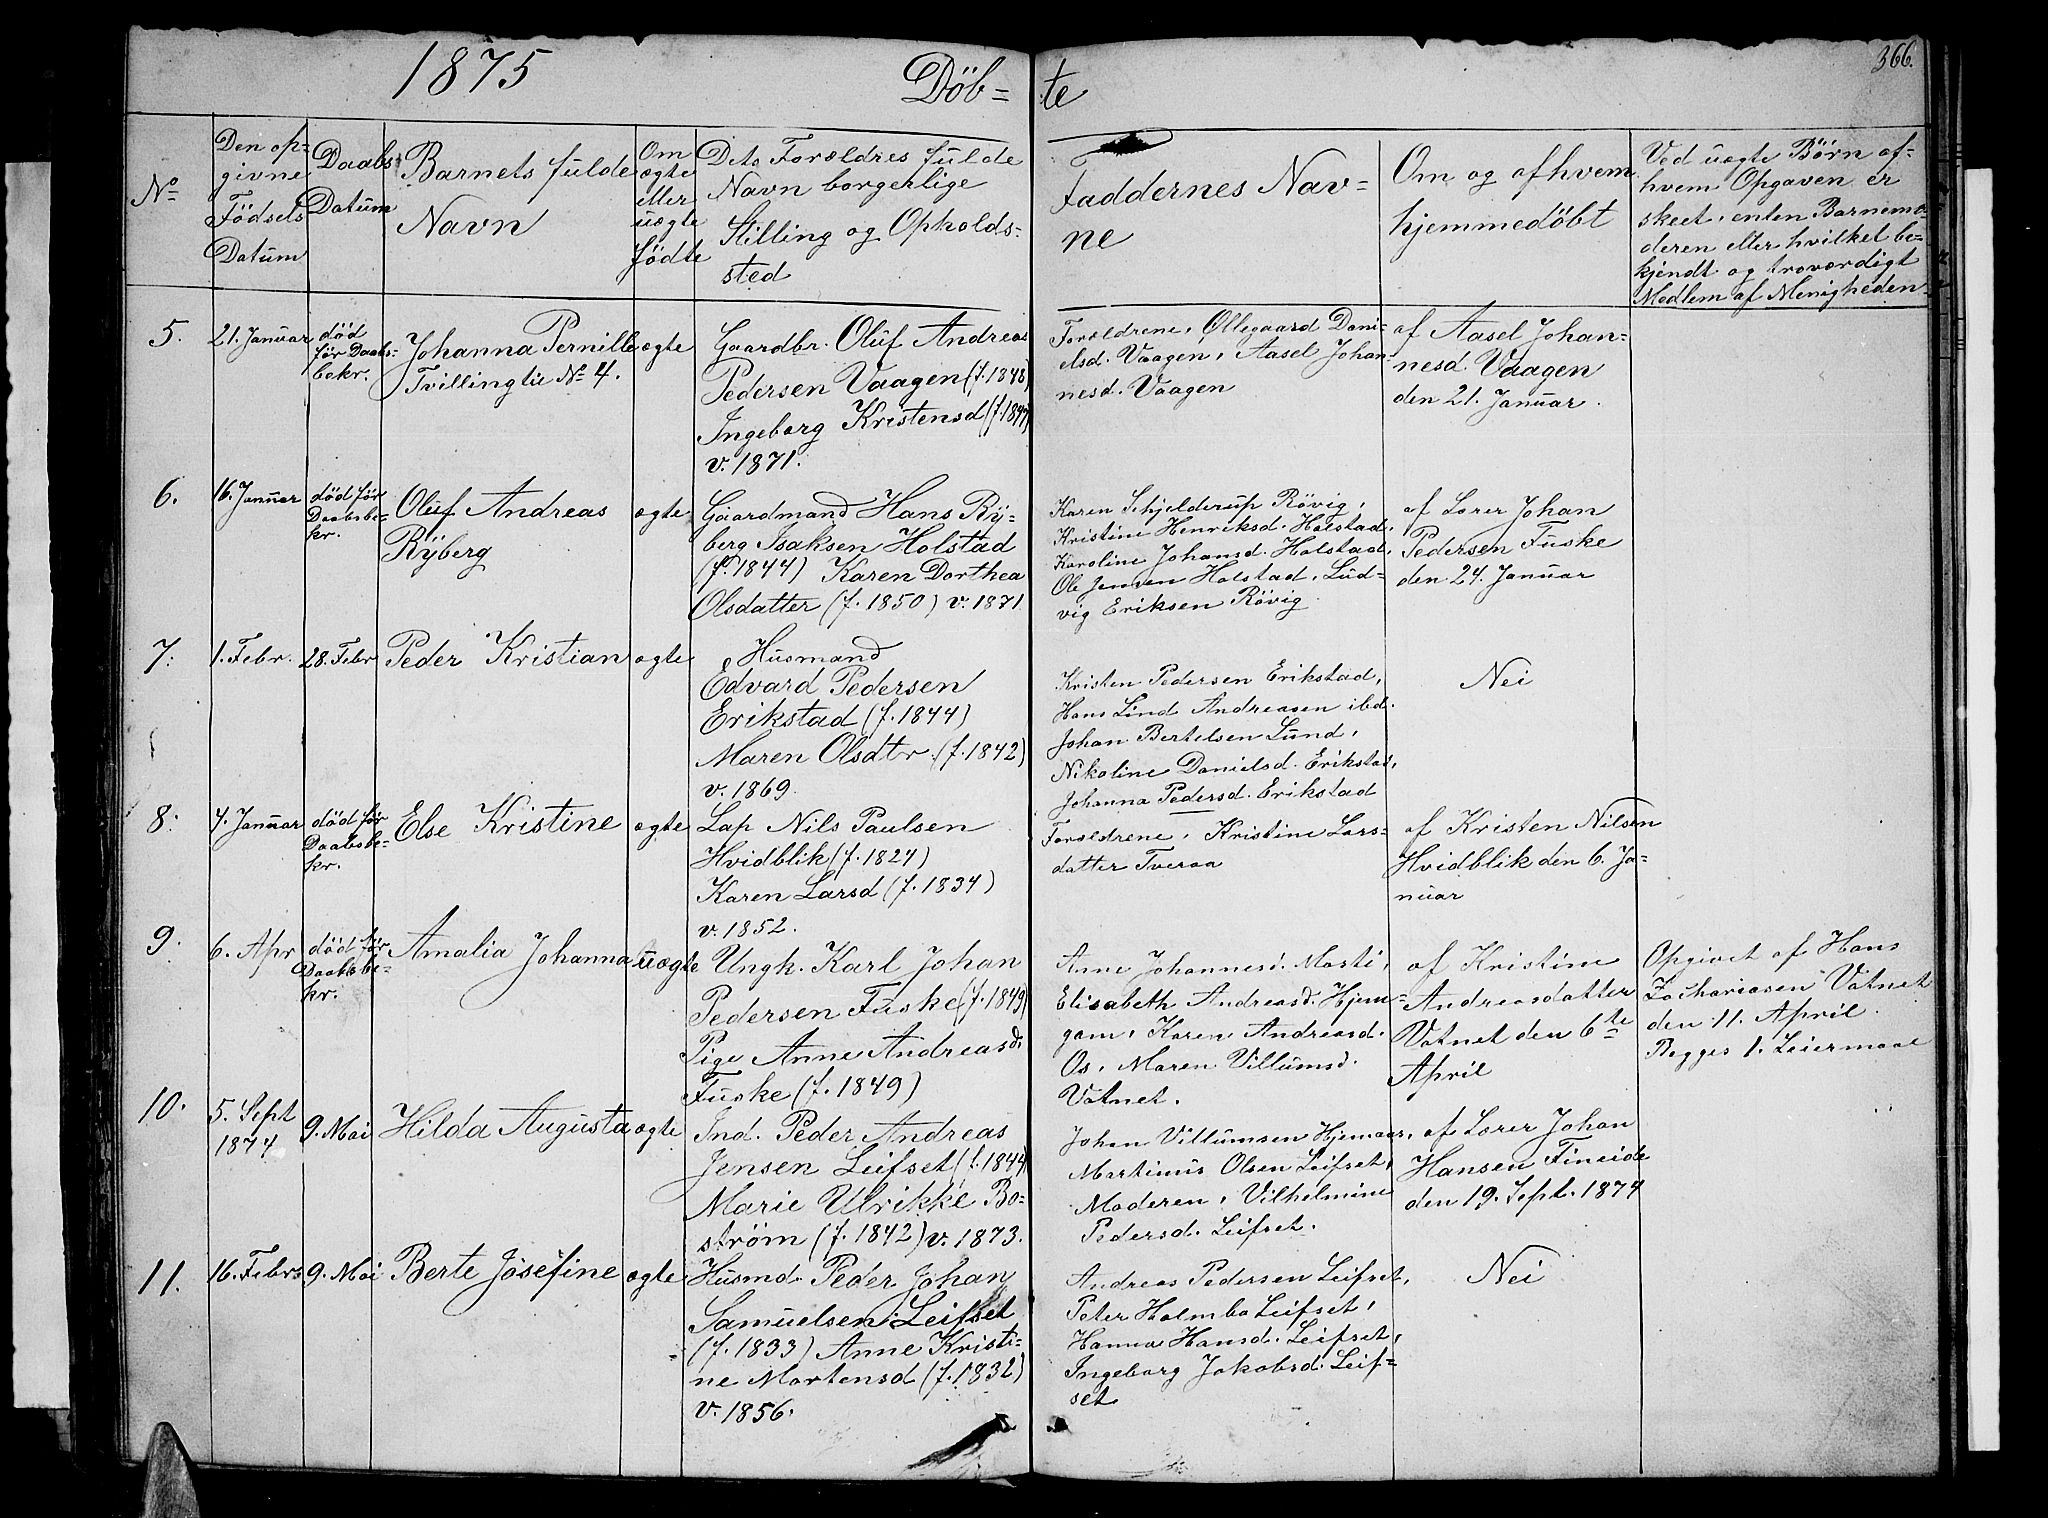 1875
Döb=
te
366.
No
Den op=
givne
Födsels
Datum
Daabs
Datum
Barnets fulde
Navn
Om
ægte
eller
uægte
födte
Dets Forældres fulde
Navn borgerlige
Stilling og Opholds=
sted
Faddernes Nav=
ne
Om og af hvem
hjemmedöbt
Ved uægte Börn af=
hvem Opgaven er
skeet, enten Barnemo=
deren eller hvilket be=
kjendt og troværdigt
Medlem af Menigheden
5.
21. Januar
död
för Daabs=
bekr.
Johanna Pernille
Tvilling til No 4.
ægte
Gaardbr. Oluf Andreas
Pedersen Vaagen (f. 1848)
Ingeborg Kristensd (f. 1847)
v. 1871.
Forældrene, Öllegaard Dani=
elsd. Vaagen, Aasel Johan=
nesd. Vaagen
af Aasel Johan=
nesd. Vaagen
den 21. Januar.
6.
16. Januar
död för
Daabsbe=
kr.
Oluf Andreas
Rÿberg
ægte
Gaardmand Hans Rÿ=
berg Isaksen Holstad
(f. 1844) Karen Dorthea
Olsdatter (f. 1850) v. 1871
Karen Schjelderup Rövig,
Kristine Henriksd. Holstad,
Karoline Johansd. Holstad,
Ole Jensen Holstad, Lud=
vig Eriksen Rövig
af Lærer Johan
Pedersen Fuske
den 24. Januar
7.
1. Febr.
28. Febr
Peder Kristian
ægte
Husmand
Edvard Pedersen
Erikstad (f. 1844)
Maren Olsdtr. (f. 1842)
v. 1869.
Kristen Pedersen Erikstad,
Hans Lind Andreasen ibd.
Johan Bertelsen Lund,
Nikoline Danielsd. Erikstad,
Johanna Pedersd. Erikstad
Nei
8.
4. Januar
död för
Daabsbe=
kr.
Else Kristine
ægte
Lap Nils Paulsen
Hvidblik (f. 1824)
Karen Larsd (f. 1834)
v. 1852.
Forældrene, Kristine Lars=
datter Tveraa
af Kristen Nilsen
Hvidblik den 6. Ja=
nuar
9.
6. Apr
död för
Daabsbe=
kr.
Amalia Johanna
uægte
Ungk. Karl Johan
Pedersen Fuske (f. 1849)
Pige Anne Andreasd.
Fuske (f. 1849)
Anne Johannesd. Marti,
Elisabeth Andreasd. Hjem=
gam, Karen Andreasd.
Os, Maren Villumsd.
Vatnet.
af Kristine
Andreasdatter
Vatnet den 6te
April
Opgivet af Hans
Zachariasen Vatnet
den 11. April.
Begges 1. Leiermaal
10.
5. Sept
1874
9. Mai
Hilda Augusta
ægte
Ind. Peder Andreas
Jensen Leifset (f. 1844)
Marie Ulrikke Bo=
ström (f. 1842) v. 1873.
Johan Villumsen Hjemaas,
Martinus Olsen Leifset,
Moderen, Vilhelmine
Pedersd. Leifset.
af Lærer Johan
Hansen Fineide
den 19. Sept. 1874
11.
16. Febr.
9. Mai
Berte Josefine
ægte
Husmd. Peder Johan
Samuelsen Leifset
(f. 1833) Anne Kristi=
ne Mortensd (f. 1832)
v. 1856.
Andreas Pedersen Leifset,
Peter Holmbo Leifset,
Hanna Hansd. Leifset,
Ingeborg Jakobsd. Leif=
set
Nei